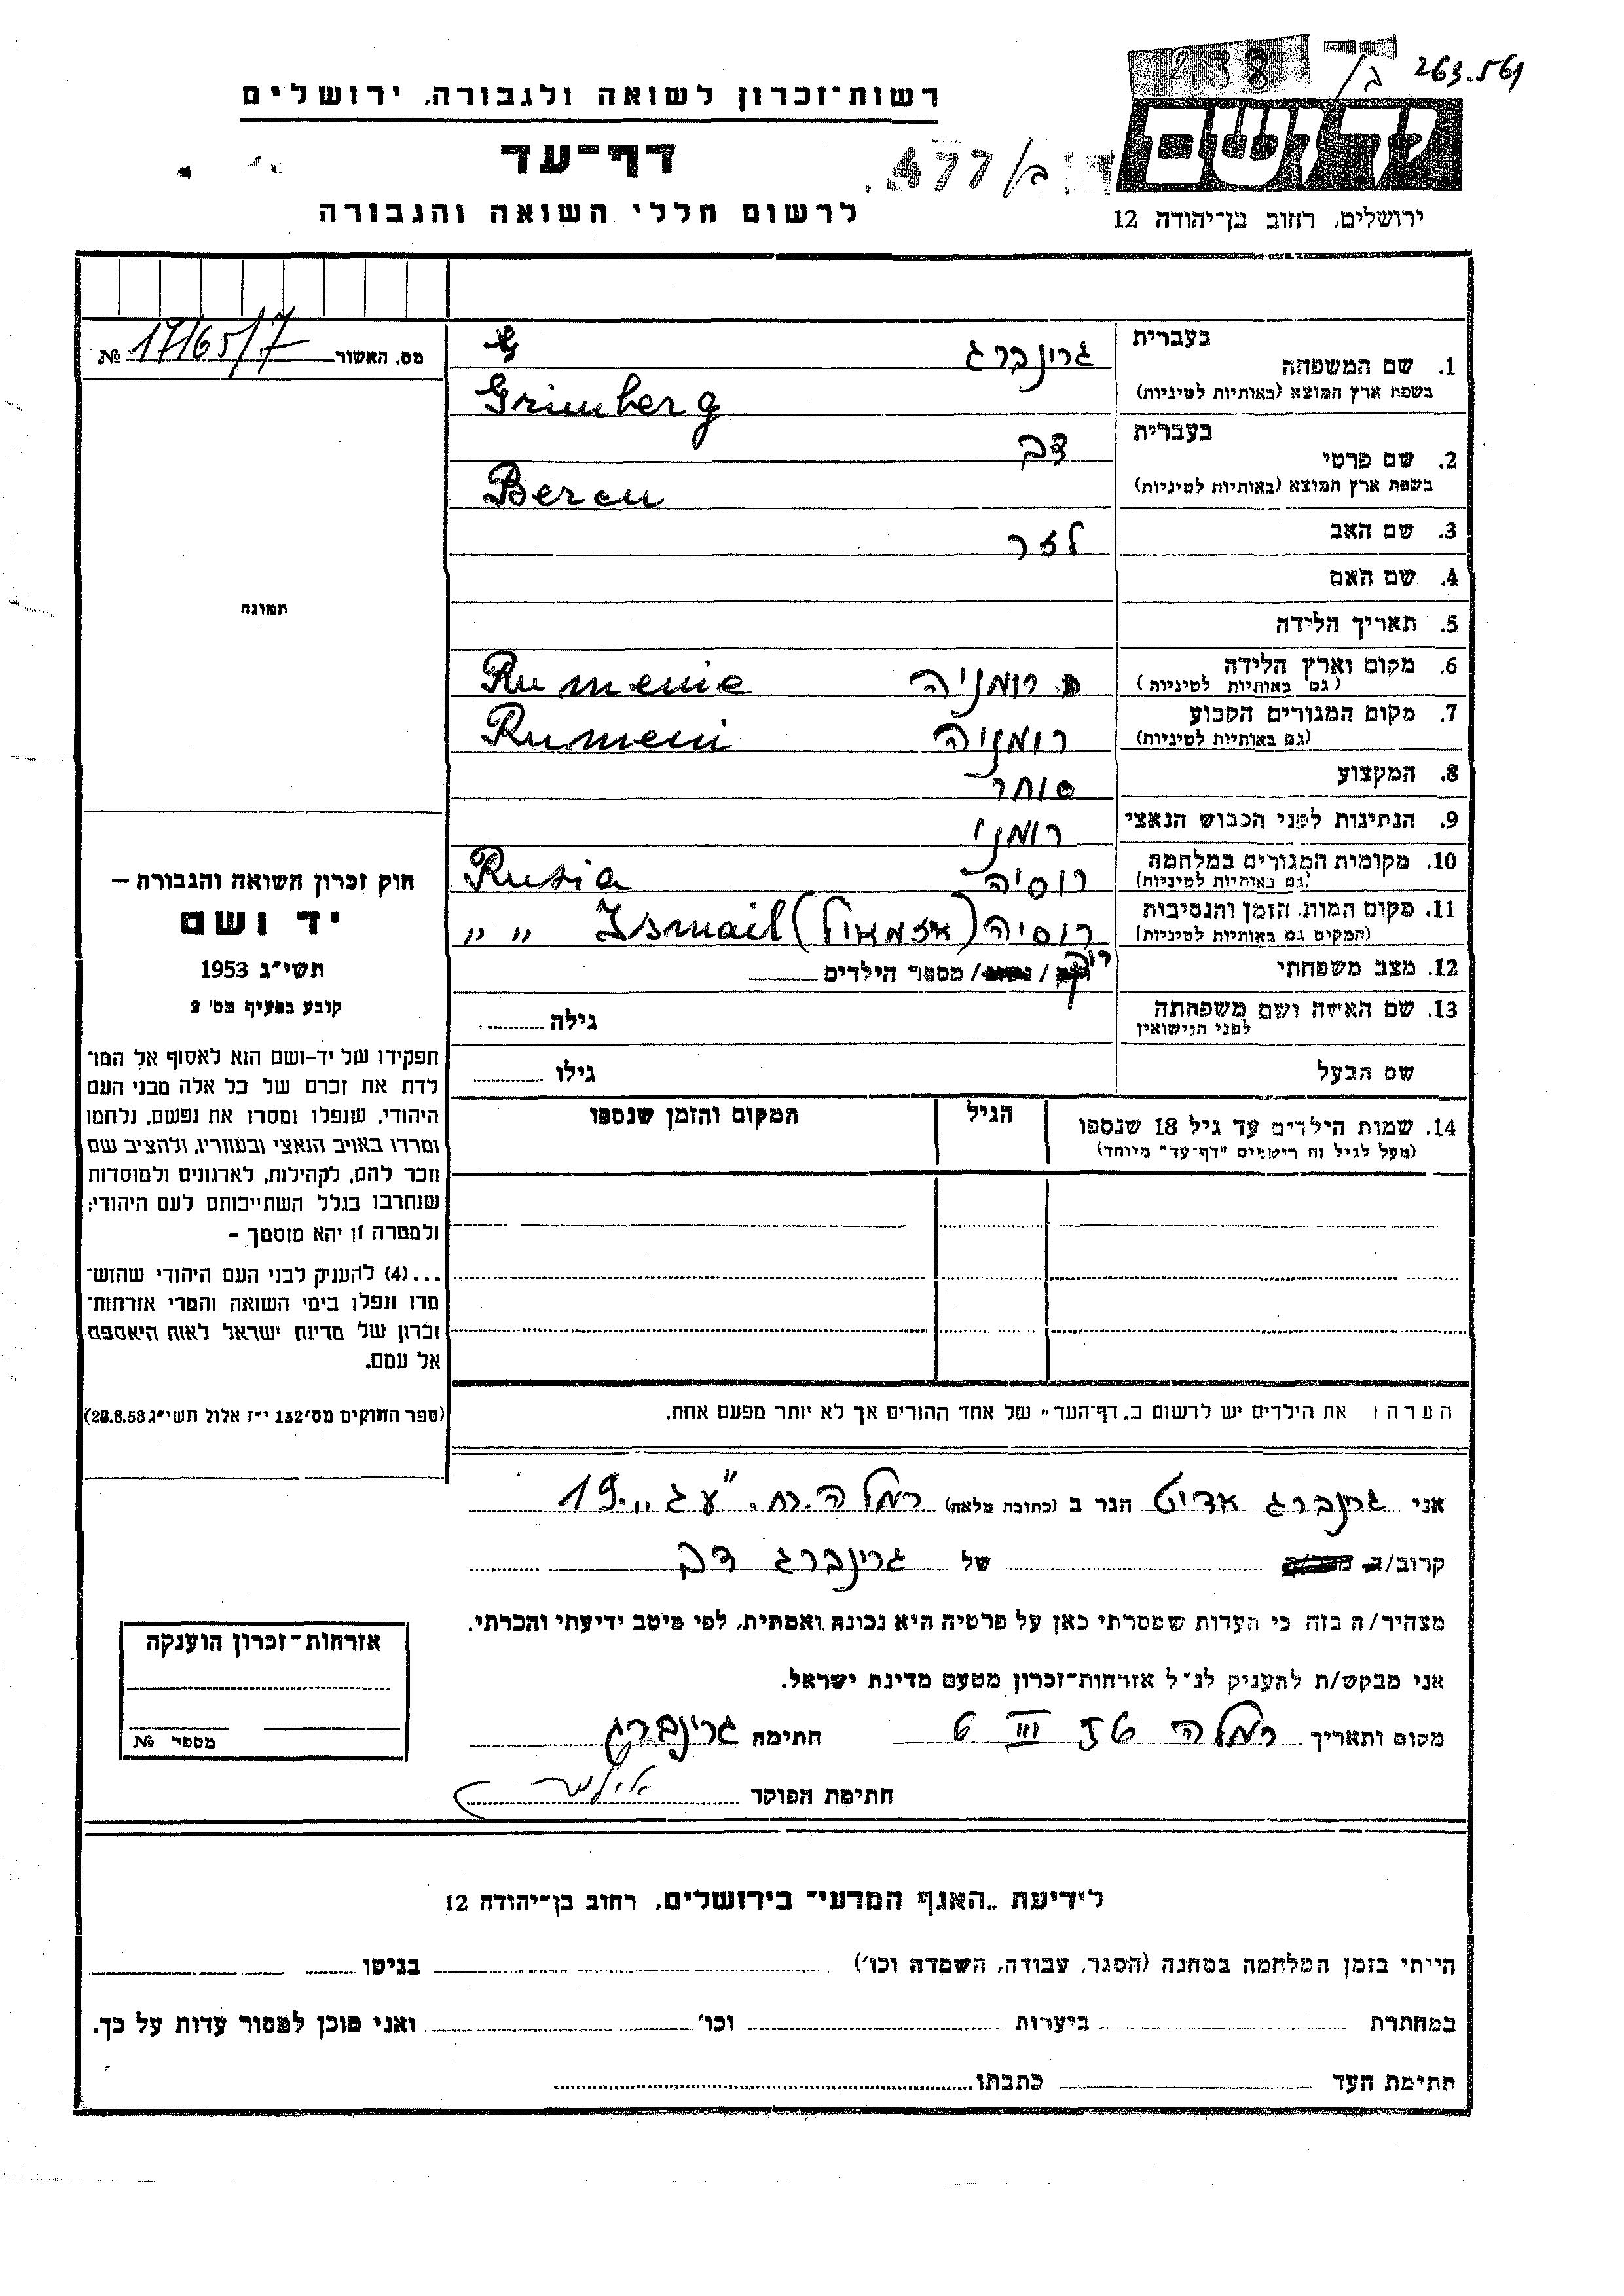 263.561
438
ידושם
ירושלים, רחוב בן־יהודה 12
רשות־זכרון לשואה ולגבורה, ירושלים
דף־עד
477
לרשום חללי השואה והגבורה
מס. האשור 17/65/7 №
תמונה
חוק זכרון השואה והגבורה –
יד ושם
תשי"ג 1953
קובע בסעיף מס' 2
תפקידו של יד-ושם הוא לאסוף אל המו־
לדת את זכרם של כל אלה מבני העם
היהודי, שנפלו ומסרו את נפשם, נלחמו
ומרדו באויב הנאצי ובעוזריו, ולהציב שם
וזכר להם, לקהילות, לארגונים ולמוסדות
שנחרבו בגלל השתייכותם לעם היהודי;
ולמטרה זו יהא מוסמך –
...(4) להעניק לבני העם היהודי שהוש־
מדו ונפלו בימי השואה והמרי אזרחות־
זכרון של מדינת ישראל לאות היאספם
אל עמם.
(ספר החוקים מס' 132 י"ז אלול תשי"ג 28.8.53)
בעברית גרינברג
1. שם המשפחה
בשפת ארץ המוצא (באותיות לטיניות) Grimberg
בעברית דב
2. שם פרטי
בשפת ארץ המוצא (באותיות לטיניות) Bercu
3. שם האב לזר
4. שם האם
5. תאריך הלידה
6. מקום וארץ הלידה רומניה Rumenie
(גם באותיות לטיניות)
7. מקום המגורים הקבוע רומניה Rumeni
(גם באותיות לטיניות)
8. המקצוע סוחר
9. הנתינות לפני הכבוש הנאצי רומני
10. מקומות המגורים במלחמה רוסיה Rusia
(גם באותיות לטיניות)
11. מקום המות, הזמן והנסיבות רוסיה (איזמאיל) Ismail " "
(המקום גם באותיות לטיניות)
12. מצב משפחתי / / מספר הילדים
13. שם האשה ושם משפחתה גילה
לפני הנישואין
שם הבעל גילו
14. שמות הילדים עד גיל 18 שנספו הגיל המקום והזמן שנספו
(מעל לגיל זה רושמים "דף־עד" מיוחד)
הערה: את הילדים יש לרשום ב„דף־העד" של אחד ההורים אך לא יותר מפעם אחת.
אני גרינברג אדיט הגר ב (כתובת מלאה) רמלה רח. "עג" 19
קרוב/ה של גרינברג דב
מצהיר/ה בזה כי העדות שמסרתי כאן על פרטיה היא נכונה ואמתית, לפי מיטב ידיעתי והכרתי.
אני מבקש/ת להעניק לנ"ל אזרחות־זכרון מטעם מדינת ישראל.
מקום ותאריך רמלה 56 III 6 חתימה גרינברג
חתימת הפוקד
אזרחות־זכרון הוענקה
מספר №
לידיעת „האגף המדעי" בירושלים, רחוב בן־יהודה 12
הייתי בזמן המלחמה במחנה (הסגר, עבודה, השמדה וכו') בגיטו
במחתרת ביערות וכו' ואני מוכן למסור עדות על כך.
חתימת העד כתבתו